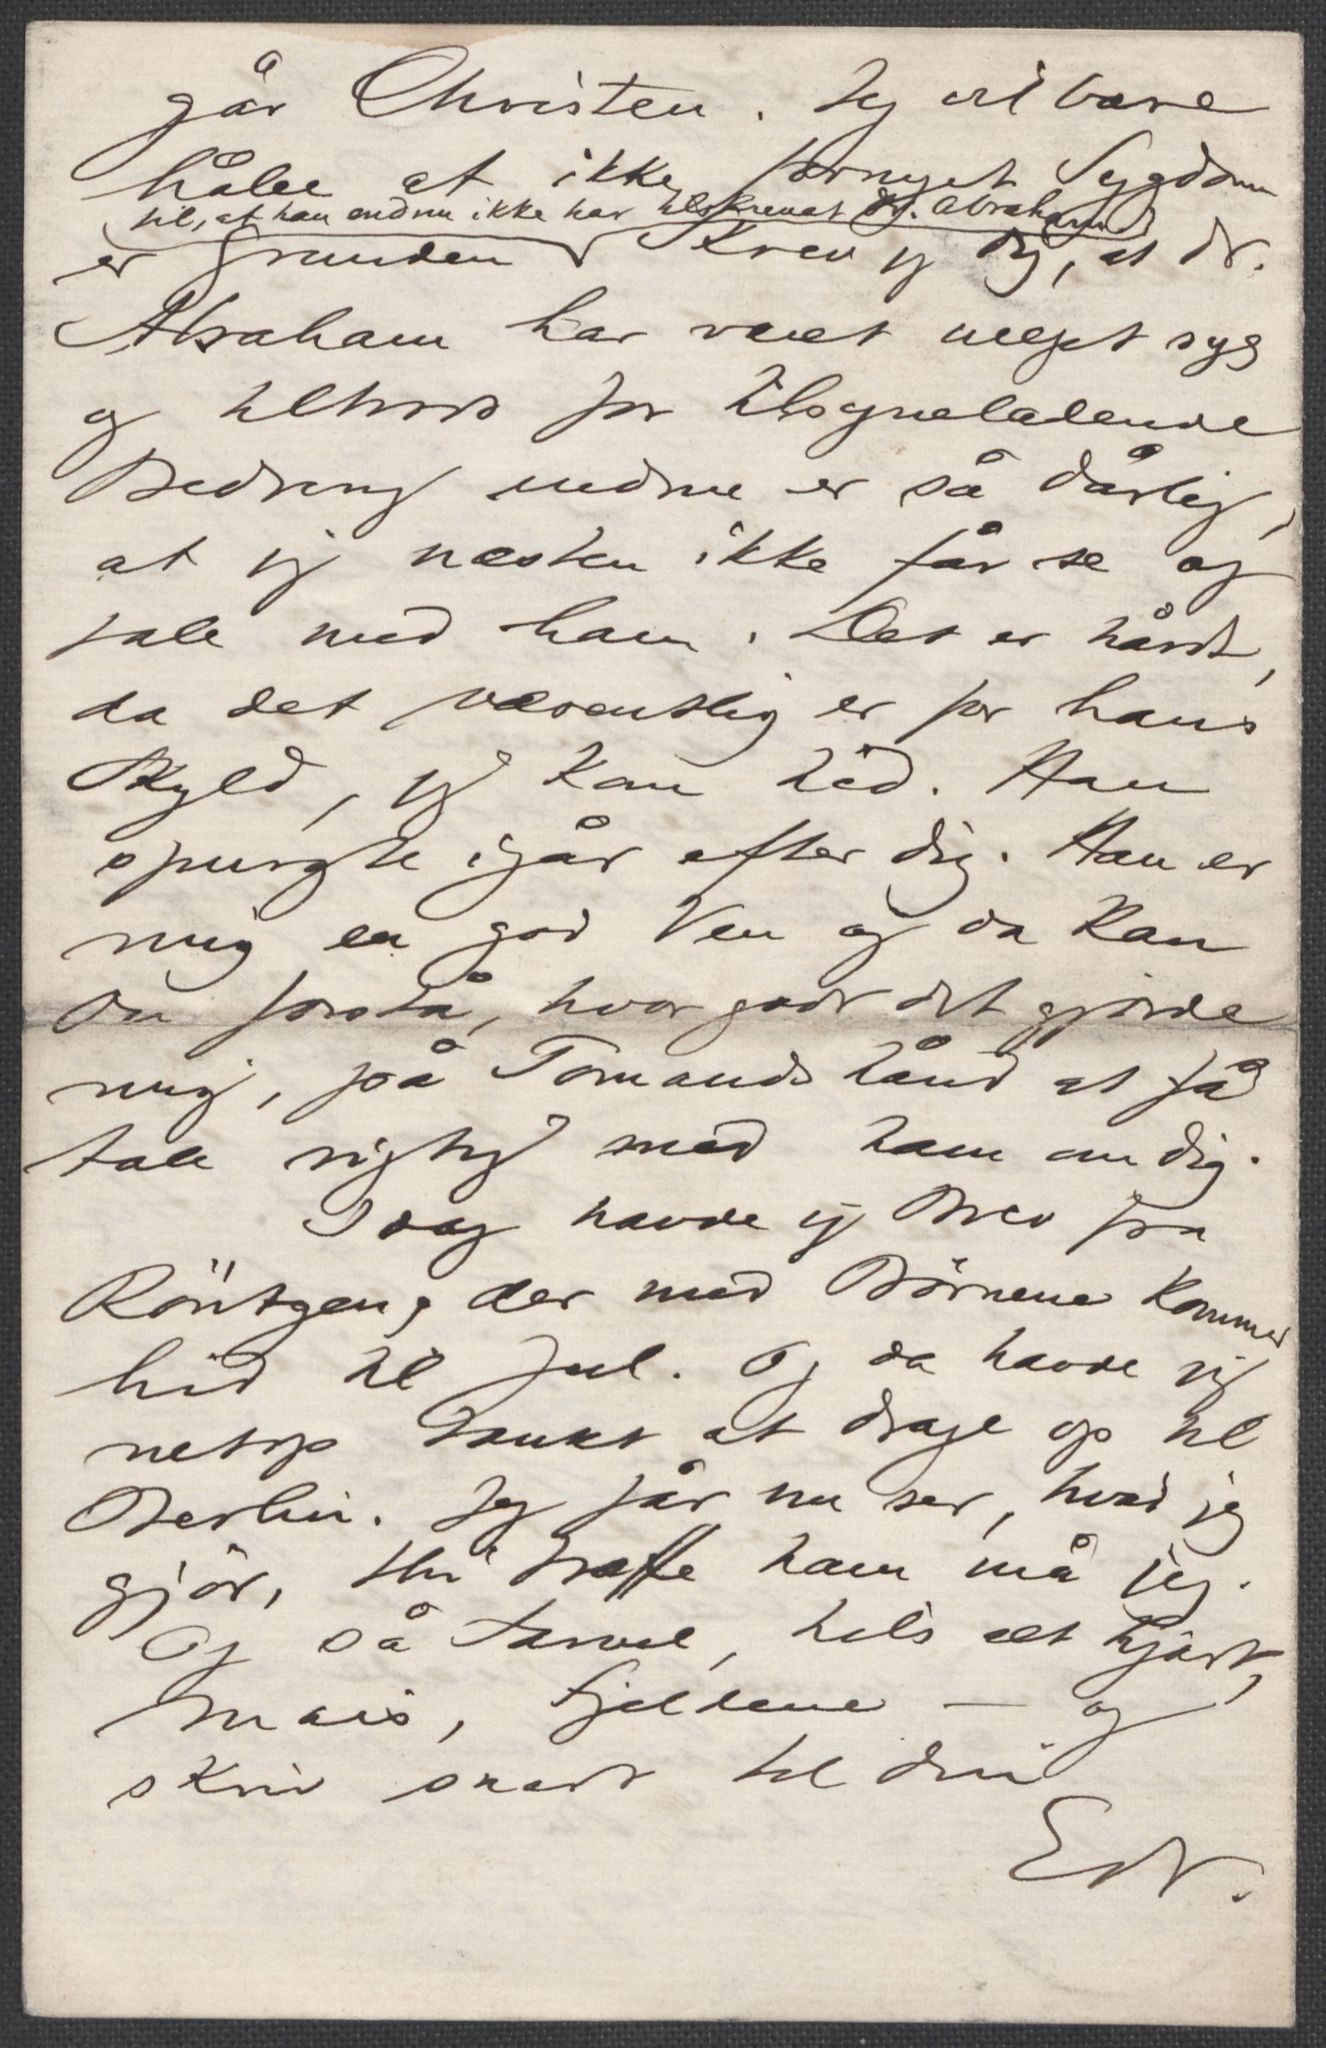 går Christen. Jeg vil bare
håbe at ikke fornyet Sygdom
til, at han endnu ikke har tilskrevet Dr. Abraham
er Grunden Skrev jeg dig, at Dr.
Abraham har været meget syg
og tiltrods for tilsyneladende
Bedring endnu er så dårlig,
at jeg næsten ikke får se og
tale med ham. Det er hårdt,
da det væsentlig er for hans
Skyld, jeg kom hid. Han
spurgte igår efter dig. Han er
mig en god Ven og da kan
Du forstå, hvor godt det gjorde
mig, på Tomands hånd at få
tale rigtig med ham om dig.
Idag havde jeg Brev fra
Röntgen, der med Börnene kommer
hid til Jul. Og da havde jeg
netop tænkt at drage op til
Berlin. Jeg får nu se, hvad jeg
gjör, thi træffe ham må jeg.
Og så Farvel, hils alt kjært,
Marie, Fjeldene — og
skriv snart til din
Edv.